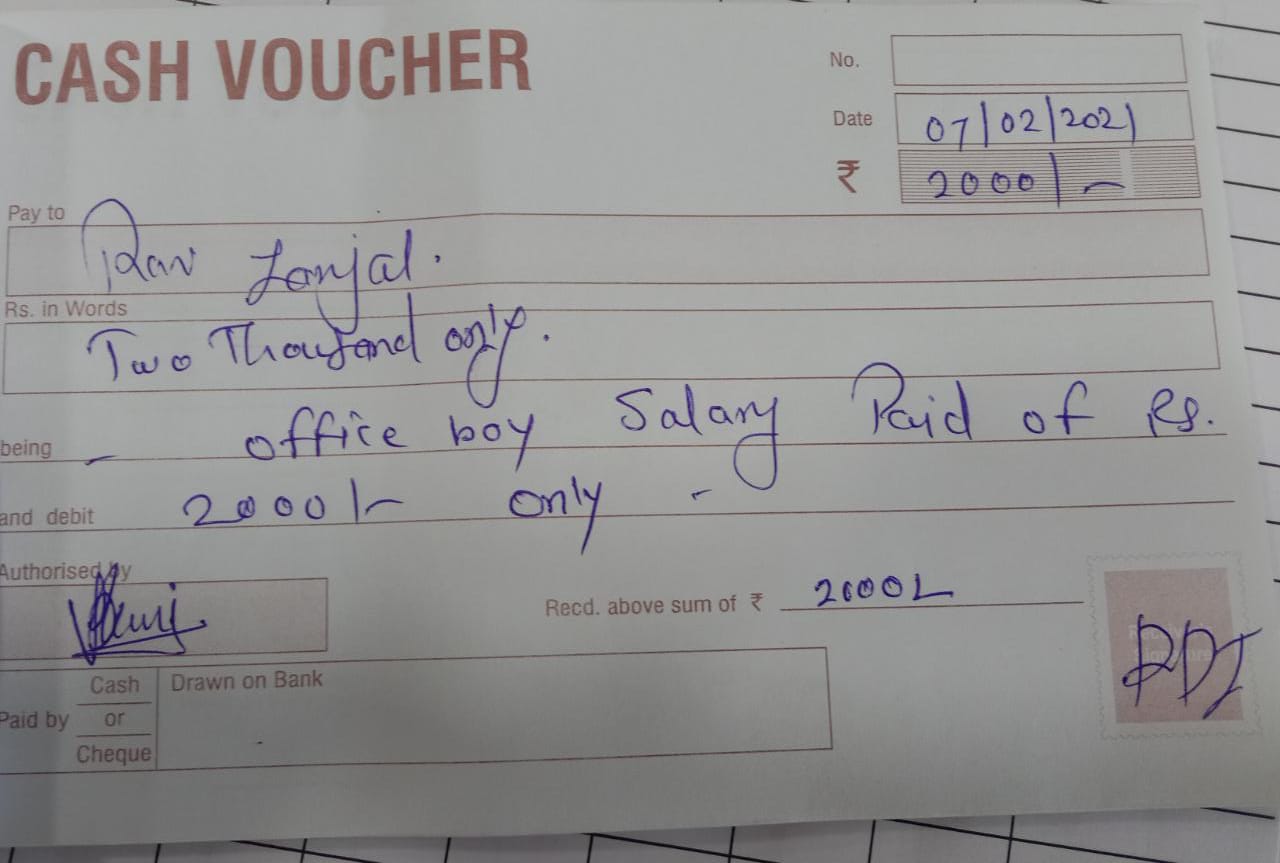 CASH VOUCHER
No.
Date 07/02/2021
₹ 2000/-
Pay to
Rav Lonjal.
Rs. in Words
Two Thousand only.
being - office boy Salary Paid of Rs.
and debit 2000/- only -
Authorised by
Recd. above sum of ₹ 2000/-
RDJ
Paid by Cash or Cheque
Drawn on Bank